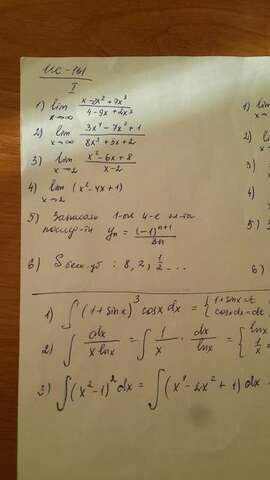 ИС-161
I
1) lim x→∞ (x-2x²+7x³)/(4-9x+2x³)
2) lim x→∞ (3x⁴-7x²+1)/(8x³+5x+2)
3) lim x→2 (x²-6x+8)/(x-2)
4) lim x→2 (x²-4x+1)
5) Записать 1-ые 4-е
yₙ = (-1)ⁿ⁺¹/3n
6) S : 8, 2, 1/2 ...
1) ∫(1+sinx)³cosx dx = {1+sinx=t cosx dx=dt
2) ∫dx/(x lnx) = ∫1/x · dx/lnx = {
3) ∫(x²-1)²dx = ∫(x⁴-2x²+1)dx
1)
x→
2)
3)
4)
5)
6)